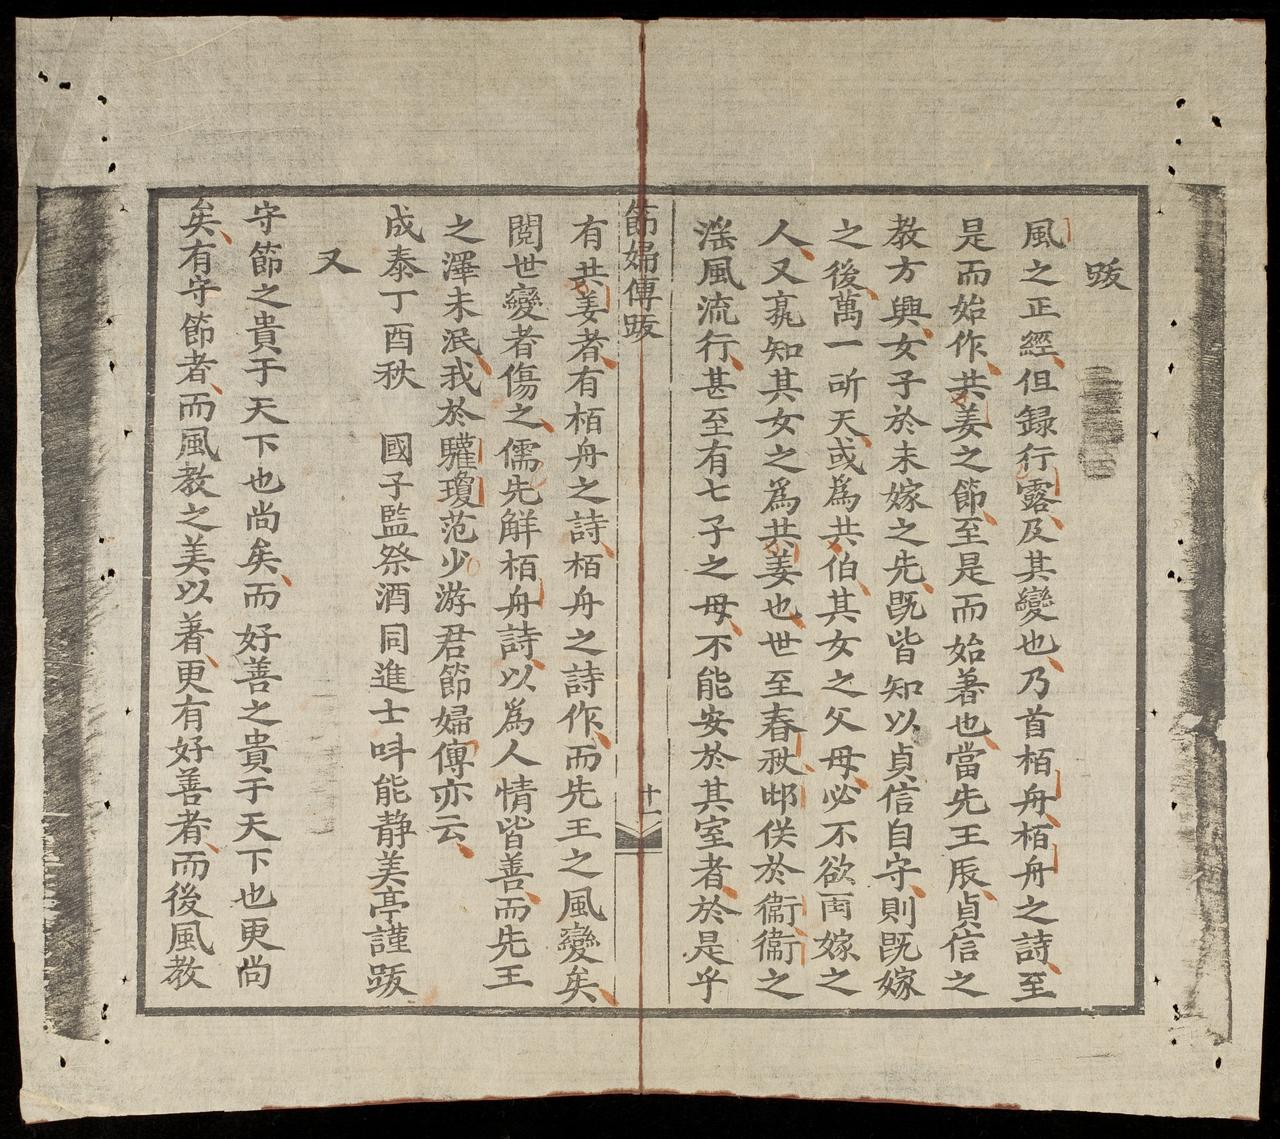 跋
風之正經但録行露及其變也乃首栢舟栢舟之詩至
是而始作共姜之節至是而始著也當先王辰貞信之
教方興女子於未嫁之先既皆知以貞信自守則既嫁
之後萬一所天或為共伯其女之父母必不欲再嫁之
人又孰知其女之為共姜也世至春秋邶倂於衞衞之
滛風流行甚至有七子之母不能安於其室者於是乎
節婦傳跋
十一
有共姜者有栢舟之詩栢舟之詩作而先王之風變矣
閲世變者傷之儒先解栢舟詩以為人情皆善而先王
之澤未泯我於驩瓊范少游君節婦傳亦云
成泰丁酉秋 國子監祭酒同進士呌能静美亭謹跋
又
守節之貴于天下也尚矣而好善之貴于天下也更尚
矣有守節者而風教之美以著更有好善者而後風教